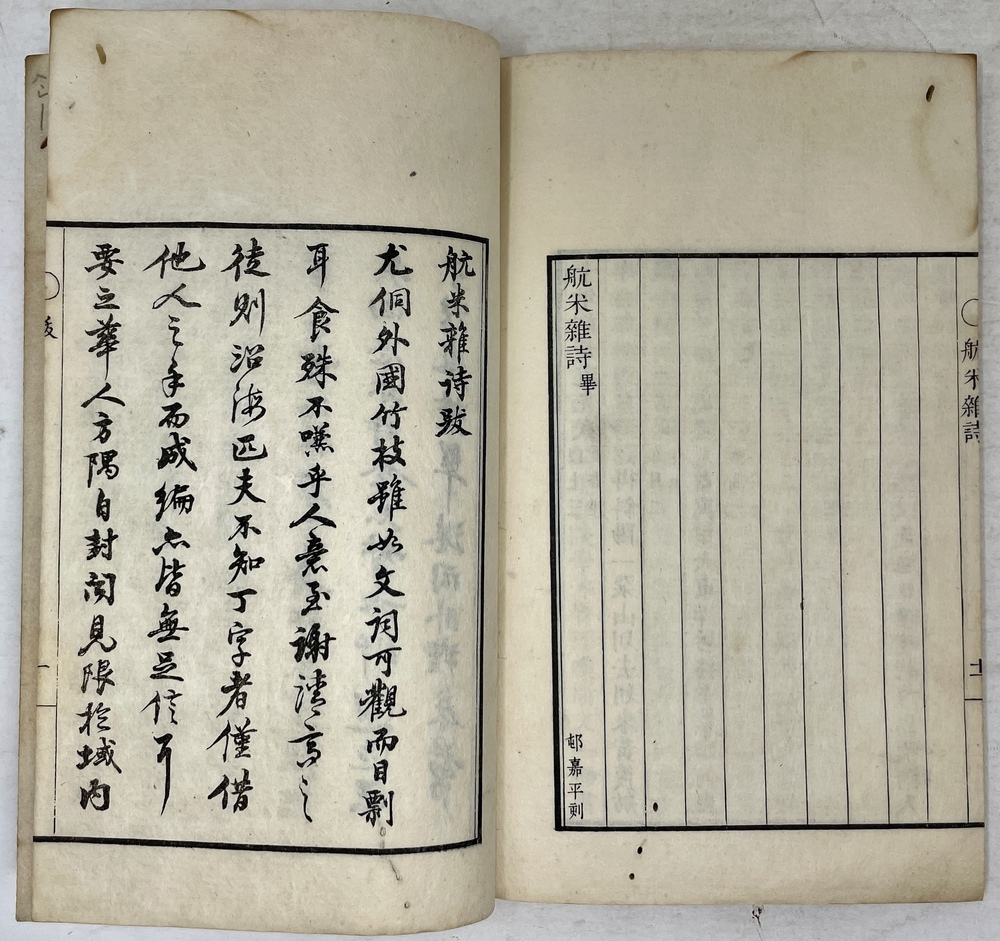 航米雜詩
航米雜詩畢
邨嘉平刻
航米雜詩跋
尤侗外國竹枝雖如文詞可觀而目剽
耳食殊不嗛乎人意至謝清高之
徒則沿海匹夫不知丁字者僅借
他人之手而成編亦皆無足信耳
要之華人方隅自封聞見限於域内
跋
一